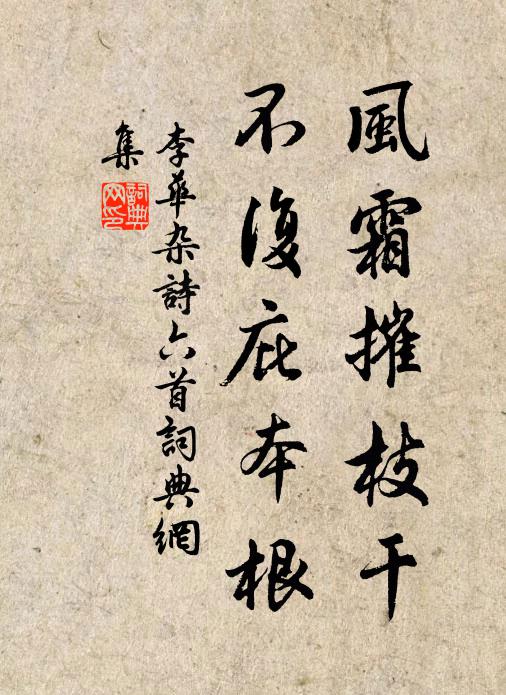 風霜摧枝干
不復庇本根
李華杂詩六首詞典網
集
詞典網印